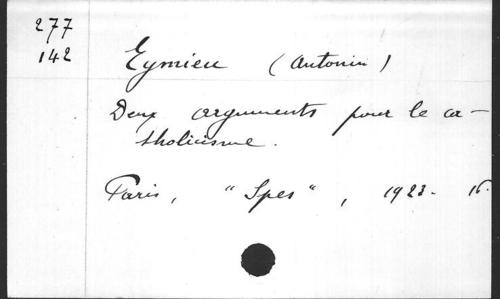 277
142
Eymieu (Antonin)
Deux arguments pour le ca-
tholicisme.
Paris, "Spes", 1923. 16.